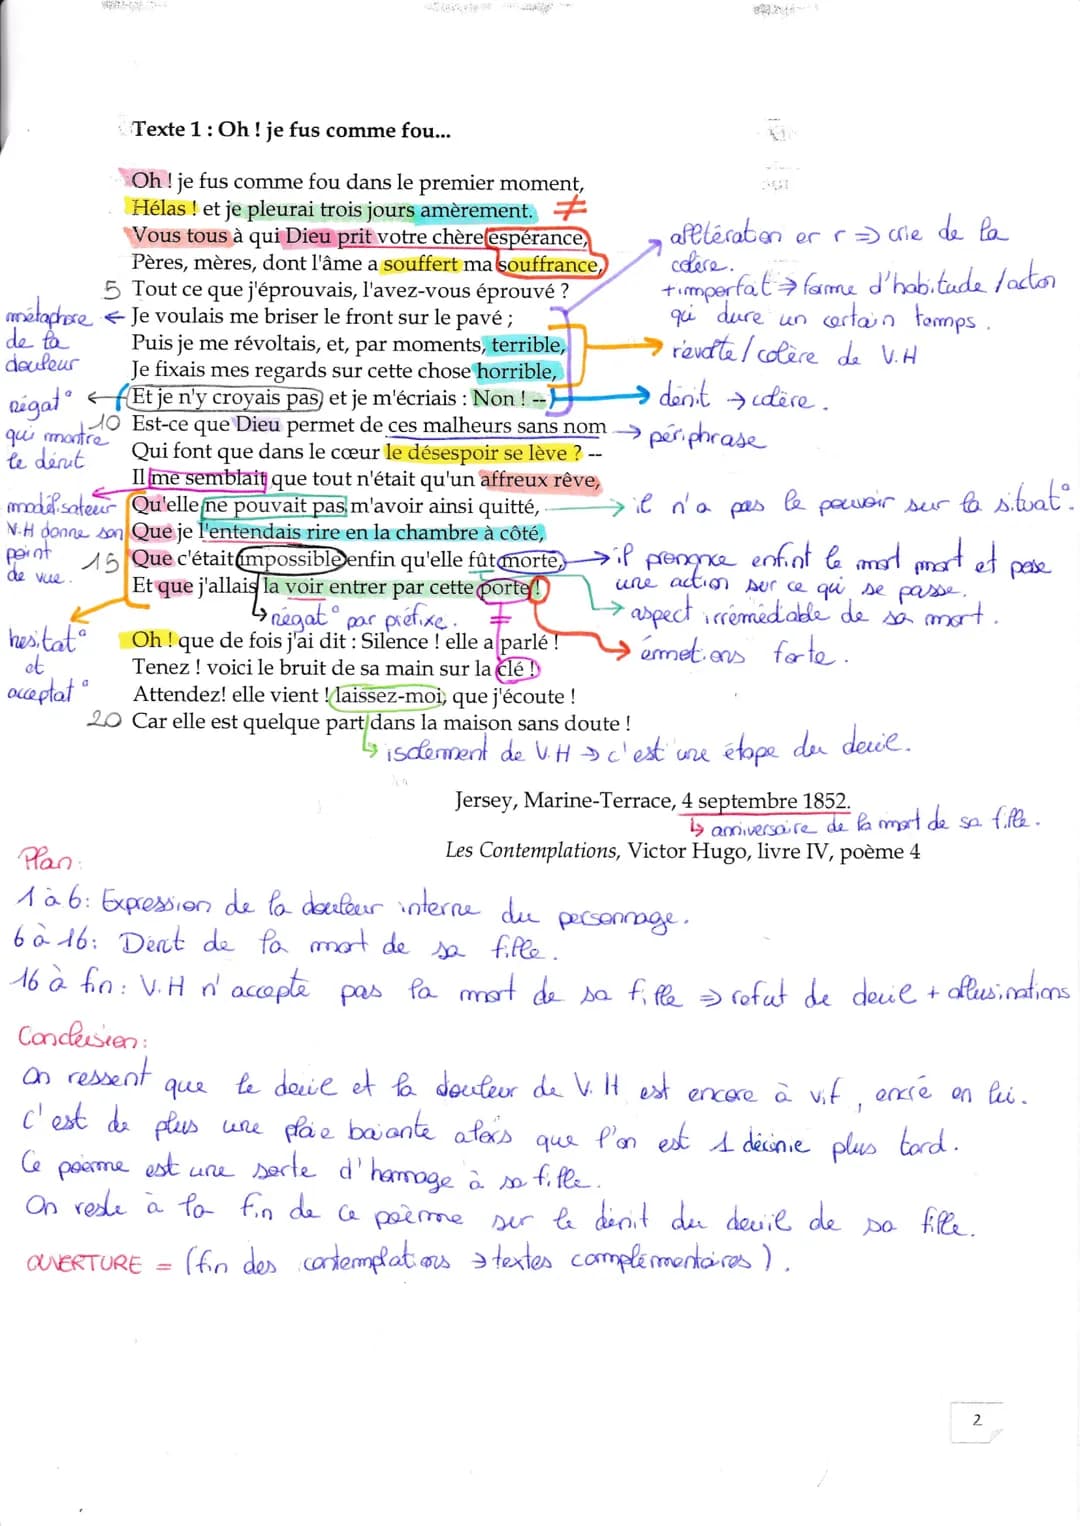 Texte 1 : Oh ! je fus comme fou...
Oh ! je fus comme fou dans le premier moment,
Hélas ! et je pleurai trois jours amèrement. ≠
Vous tous à qui Dieu prit votre chère espérance,
Pères, mères, dont l'âme a souffert ma souffrance,
5 Tout ce que j'éprouvais, l'avez-vous éprouvé ?
Je voulais me briser le front sur le pavé ;
Puis je me révoltais, et, par moments, terrible,
Je fixais mes regards sur cette chose horrible,
Et je n'y croyais pas, et je m'écriais : Non ! --
10 Est-ce que Dieu permet de ces malheurs sans nom
Qui font que dans le cœur le désespoir se lève ? --
Il me semblait que tout n'était qu'un affreux rêve,
Qu'elle ne pouvait pas m'avoir ainsi quitté,
Que je l'entendais rire en la chambre à côté,
15 Que c'était impossible enfin qu'elle fût morte,
Et que j'allais la voir entrer par cette porte !
Oh ! que de fois j'ai dit : Silence ! elle a parlé !
Tenez ! voici le bruit de sa main sur la clé !
Attendez! elle vient ! laissez-moi, que j'écoute !
20 Car elle est quelque part dans la maison sans doute !
métaphore
de la
douleur
négat°
qui montre
le dénit
modélisateur
V.H donne son
point
de vue.
hésitat°
et
acceptat°
allitération er r => crie de la
colère.
+ imperfat → forme d'habitude / acton
qui dure un certain temps.
révolte / colère de V.H
dénit → colère.
périphrase
il n'a pas le pouvoir sur la situat°.
il prononce enfint le mot mort et pose
une action sur ce qui se passe.
aspect irrémédiable de sa mort.
émmotions forte.
négat° par préfixe.
=
isolement de V.H → c'est une étape du deuil.
Jersey, Marine-Terrace, 4 septembre 1852.
anniversaire de la mort de sa fille.
Les Contemplations, Victor Hugo, livre IV, poème 4
Plan:
1 à 6: Expression de la douleur interne du personnage.
6 à 16: Dénit de la mort de sa fille.
16 à fin: V.H n'accepte pas la mort de sa fille => refut de deuil + allusinations
Conclusion:
On ressent que le deuil et la douleur de V.H est encore à vif, encré en lui.
C'est de plus une plaie baiante alors que l'on est 1 décinie plus tard.
Ce poème est une sorte d'hommage à sa fille.
On reste à la fin de ce poème sur le dénit du deuil de sa fille.
OUVERTURE = (fin des contemplations → textes complémentaires).
2